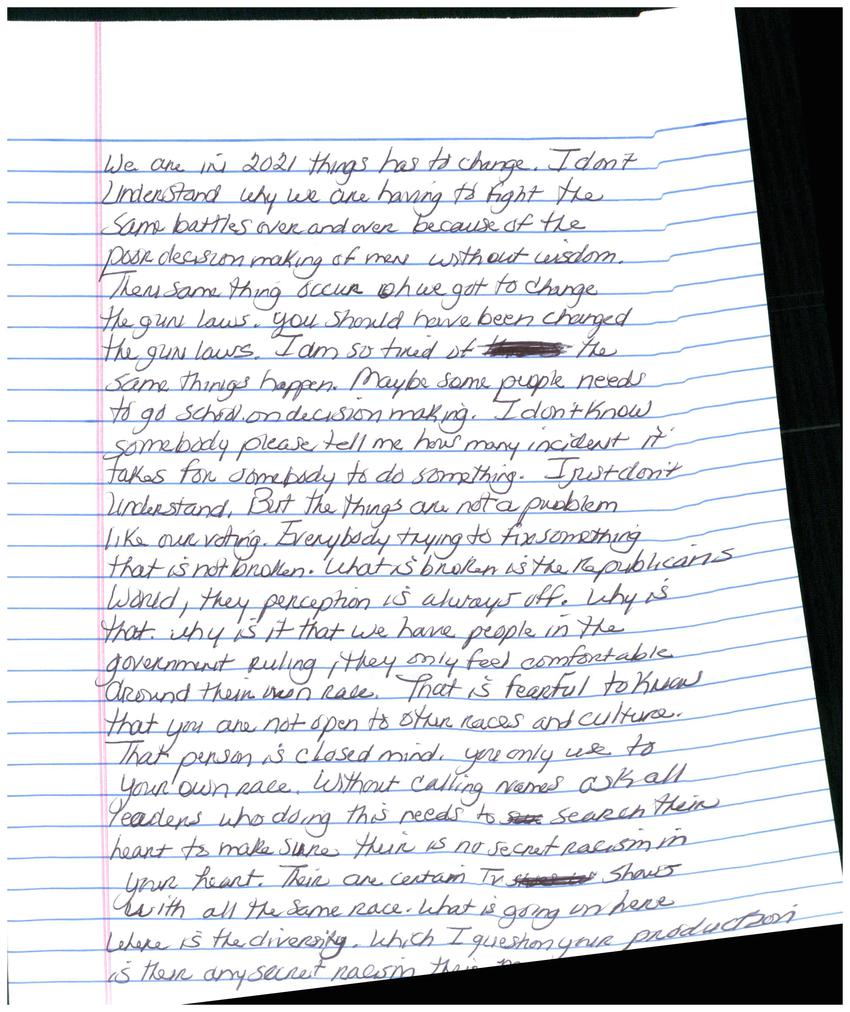 We are in 2021 things has to change. I don't
Understand why we are having to fight the
same battles over and over because of the
poor decision making of men without wisdom.
Then same thing occur oh we got to change
the gun laws. you should have been changed
the gun laws. I am so tired of the
same things happen. Maybe some people needs
to go school on decision making. I don't know
somebody please tell me how many incident it
takes for somebody to do something. I just don't
Understand. But the things are not a problem
like our voting. Everybody trying to fix something
that is not broken. What is broken is the Republicans
World, they perception is always off. Why is
that. why is it that we have people in the
government ruling, they only feel comfortable
around their own race. That is fearful to know
that you are not open to other races and culture.
That person is closed mind. you only use to
your own race. Without calling names ask all
leaders who doing this needs to search their
heart to make sure their is no secret racism in
your heart. Their are certain TV shows
with all the same race. What is going on here
Where is the diversity. Which I question your production
is their any secret racism